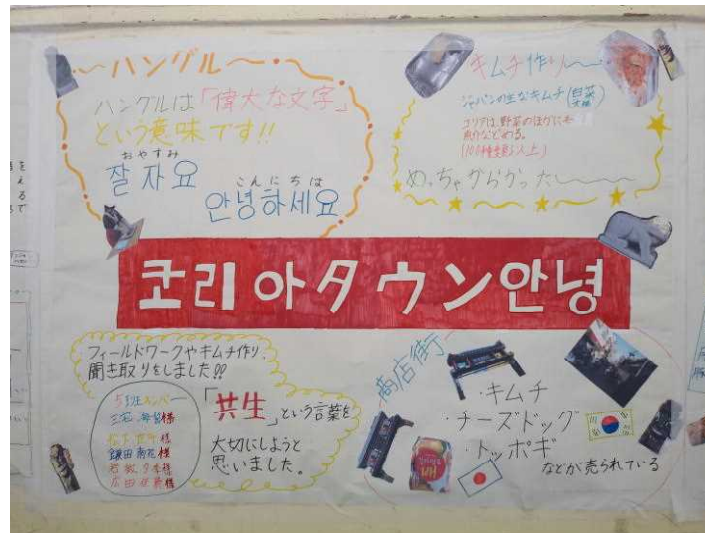 ハングル
ハングルは「偉大な文字」
という意味です!!
おやすみ
잘 자요
こんにちは
안녕하세요
キムチ作り
ジャパンの主なキムチ(白菜
大根)
コリアは、野菜のほかにも
魚介などもある。
(100種類以上)
めっちゃからかった
코리아タウン안녕
フィールドワークやキムチ作り、
聞き取りをしました!!
様
様
鎌田 様
様
広田 様
「共生」という言葉を
大切にしようと
思いました。
商店街
・キムチ
・チーズドッグ
・トッポギ
などが売られている
배